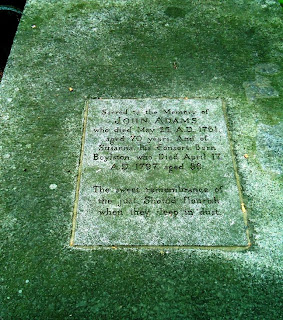 Sacred to the Memory of
JOHN ADAMS
who died May 25 A.D. 1761
aged 70 years. And of
Susanna his Consort Born
Boylston, who Died April 17
A.D. 1797 aged 88
The sweet remembrance of
the just Should flourish
when they sleep in dust.